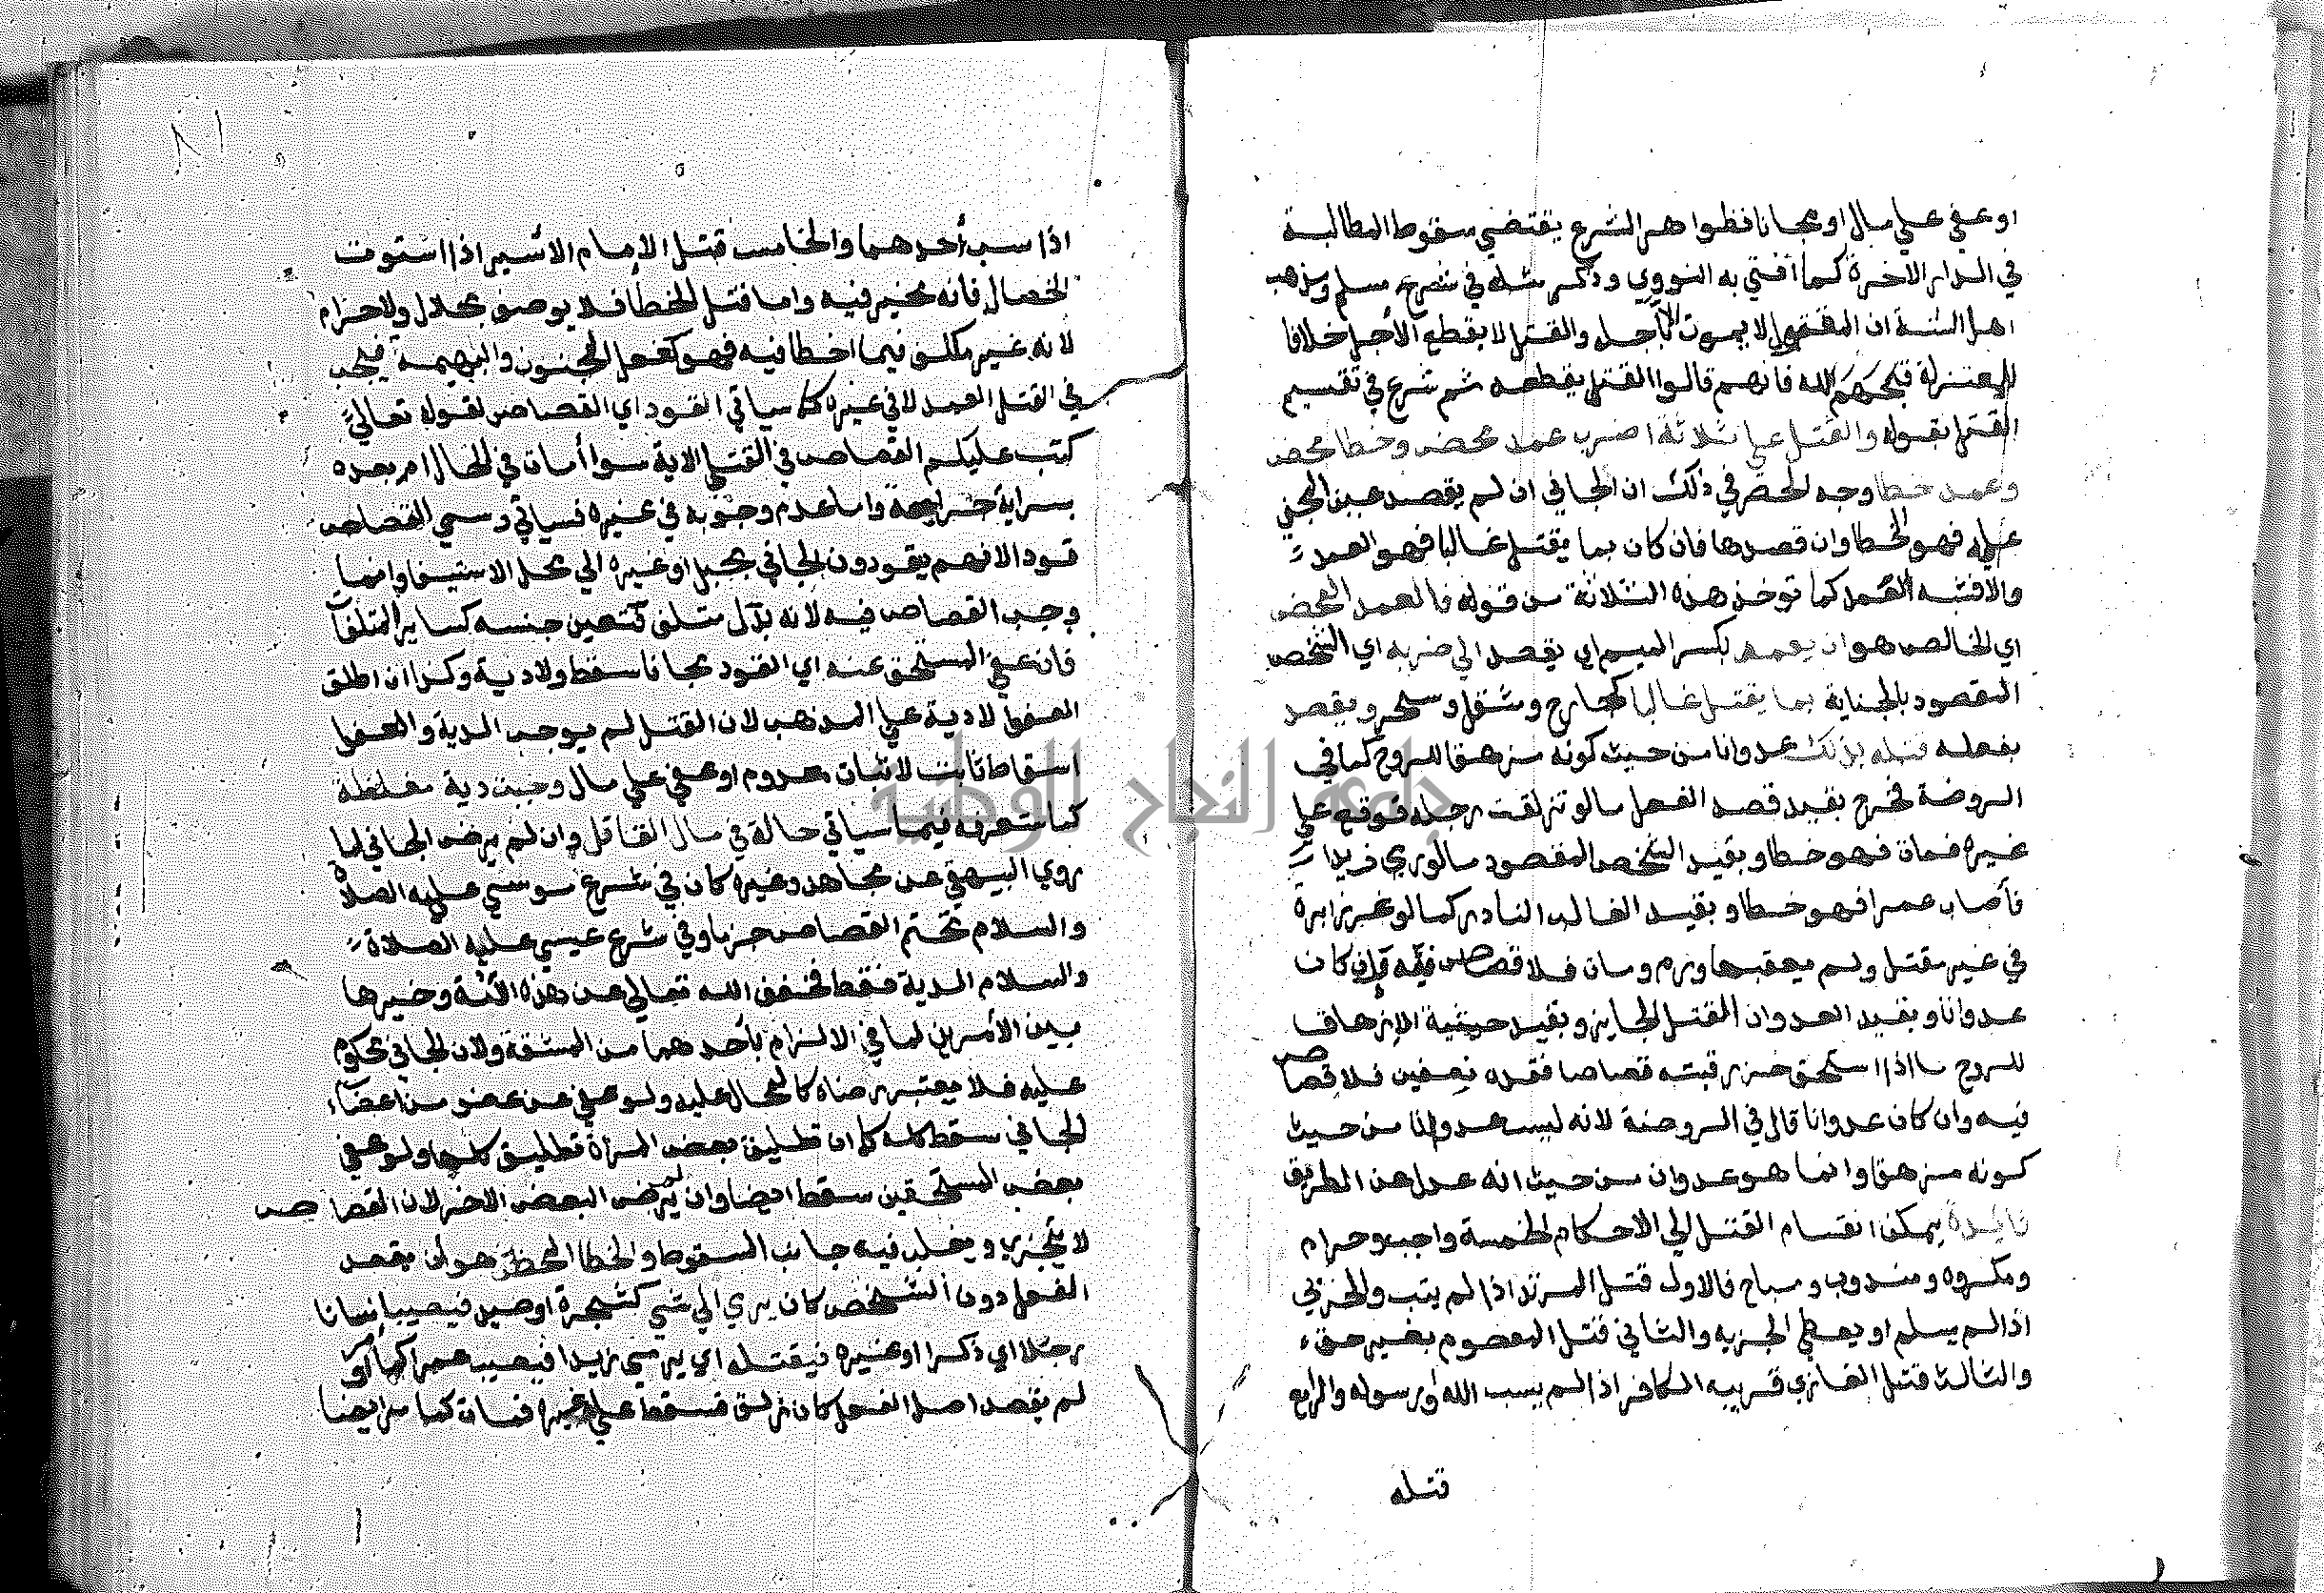 او عفي علي مال او مجانا فظواهر الشرع يقتضي سقوط المطالبة
في الدار الاخرة كما افتي به النووي وذكر مثله في شرح مسلم ومذهب
اهل السنة ان المقتول لا يموت الا باجله والقتل لا يقطع الأجل خلافا
للمعتزلة قبحهم الله فانهم قالوا القتل يقطعه ثم شرع في تقسيم
القتل بقوله والقتل علي ثلاثة اضرب عمد محض وخطا محض
وعمد خطا وجه الحصر في ذلك ان الجاني ان لم يقصد عين المجني
عليه فهو الخطا وان قصدها فان كان بما يقتل غالبا فهو العمد
والا فشبه العمد كما توخذ هذه الثلاثة من قوله فالعمد المحض
اي الخالص هو ان يعمد بكسر الميم اي يقصد الي ضربه اي الشخص
المقصود بالجناية بما يقتل غالبا كجارح ومثقل وسحر ويقصد
بفعله قتله بذلك عدوانا من حيث كونه مزهقا للروح كما في
الروضة فخرج بقيد قصد الفعل مالو تزلقت رجله فوقع علي
غيره فمات فهو خطا وبقيد الشخص المقصود مالو رمي زيدا
فأصاب عمرا فهو خطا وبقيد الغالب النادر كما لو غرز ابرة
في غير مقتل ولم يعقبها ورم ومات فلا قصاص فيه وان كان
عدوانا وبقيد العدوان القتل الجايز وبقيد حيثية الإزهاق
للروح ما اذا استحق حز رقبته قصاصا فقده نصفين فلا قصاص
فيه وان كان عدوانا قال في الروضة لانه ليس عدوانا من حيث
كونه مزهقا وانما هو عدوان من حيث انه عدل عن الطريق
فائدة يمكن انقسام القتل الي الاحكام الخمسة واجب وحرام
ومكروه ومندوب ومباح فالاول قتل المرتد اذا لم يتب والحربي
اذا لم يسلم او يعطي الجزيه والثاني قتل المعصوم بغير حق
والثالث قتل الغازي قريبه الكافر اذا لم يسب الله او رسوله والرابع
قتله
٨١
اذا سب أحدهما والخامس قتل الإمام الأسير اذا استوت
الخصال فانه مخير فيه واما قتل الخطا فلا يوصف بحلال ولا حرام
لانه غير مكلف فيما اخطا فيه فهو كفعل المجنون والبهيمة فيجب
في القتل العمد لا في غيره كما سياتي القود اي القصاص لقوله تعالي
كتب عليكم القصاص في القتلي الاية سوا أمات في الحال ام بعده
بسراية جراحة واما عدم وجوبه في غيره فسياتي وسمي القصاص
قودا لانهم يقودون الجاني بحبل او غيره الي محل الاستيفا وانما
وجب القصاص فيه لانه بدل متلف فتعين جنسه كساير المتلفا
فان عفي المستحق عنه اي القود مجانا سقط ولا دية وكذا ان اطلق
العفو لا دية علي المذهب لان القتل لم يوجب الدية والعفو
اسقاط ثابت لا اثبات معدوم او عفي علي مال وجبت دية مغلظة
كما ستعرفه فيما سياتي حالة في مال القاتل وان لم يرض الجاني لما
روي البيهقي عن مجاهد وغيره كان في شرع موسي عليه الصلاه
والسلام تحتم القصاص جزما وفي شرع عيسي عليه الصلاة
والسلام الدية فقط فخفف الله تعالي عن هذه الأمة وخيرها
بين الأمرين لما في الالزام بأحدهما من المشقة ولان الجاني محكوم
عليه فلا يعتبر رضاه كالمحال عليه ولو عفي عن عضو من اعضاء
الجاني سقط كله كما ان تطليق بعض المرأة تطليق كلها ولو عفي
بعض المستحقين سقط ايضا وان لم يرض البعض الاخر لان القصاص
لا يتجزي ويغلب فيه جانب السقوط والخطا المحض هو ان يقصد
الفعل دون الشخص كان يرمي الي شي كشجرة او صيد فيصيب انسانا
رجلا اي ذكرا او غيره فيقتله اي يرمي زيدا فيصيب عمرا كما لو
لم يقصد اصل الفعل كان زلق فسقط علي غيره فمات كما مر ايضا
جامعة النجاح الوطنية